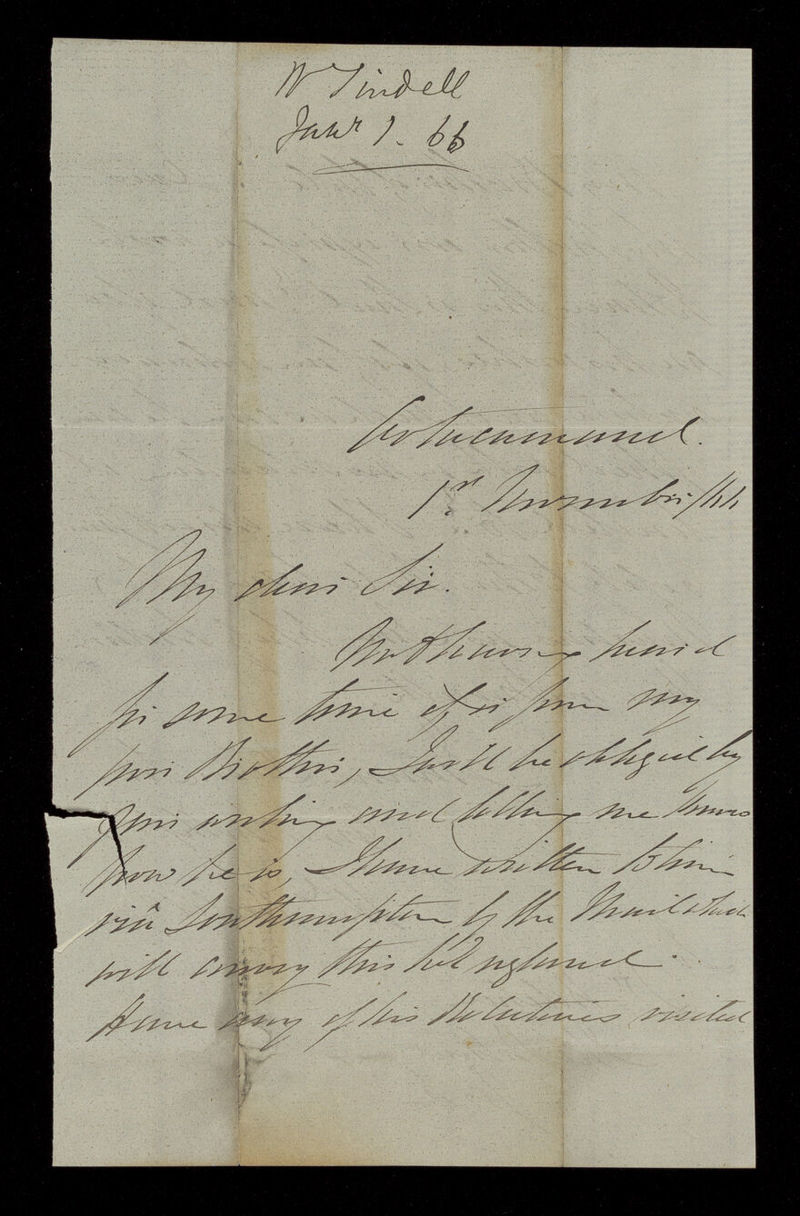 W Tindell
Janr 1. 66
Ootacamund.
1st November/66
My dear Sir.
Not having heard
for some time of or from my
poor Brother, I will be obliged by
your writing and telling me know
how he is, I have written to him
viâ Southampton by the Mail which
will convey this to England.
Have any of his Relatives visited